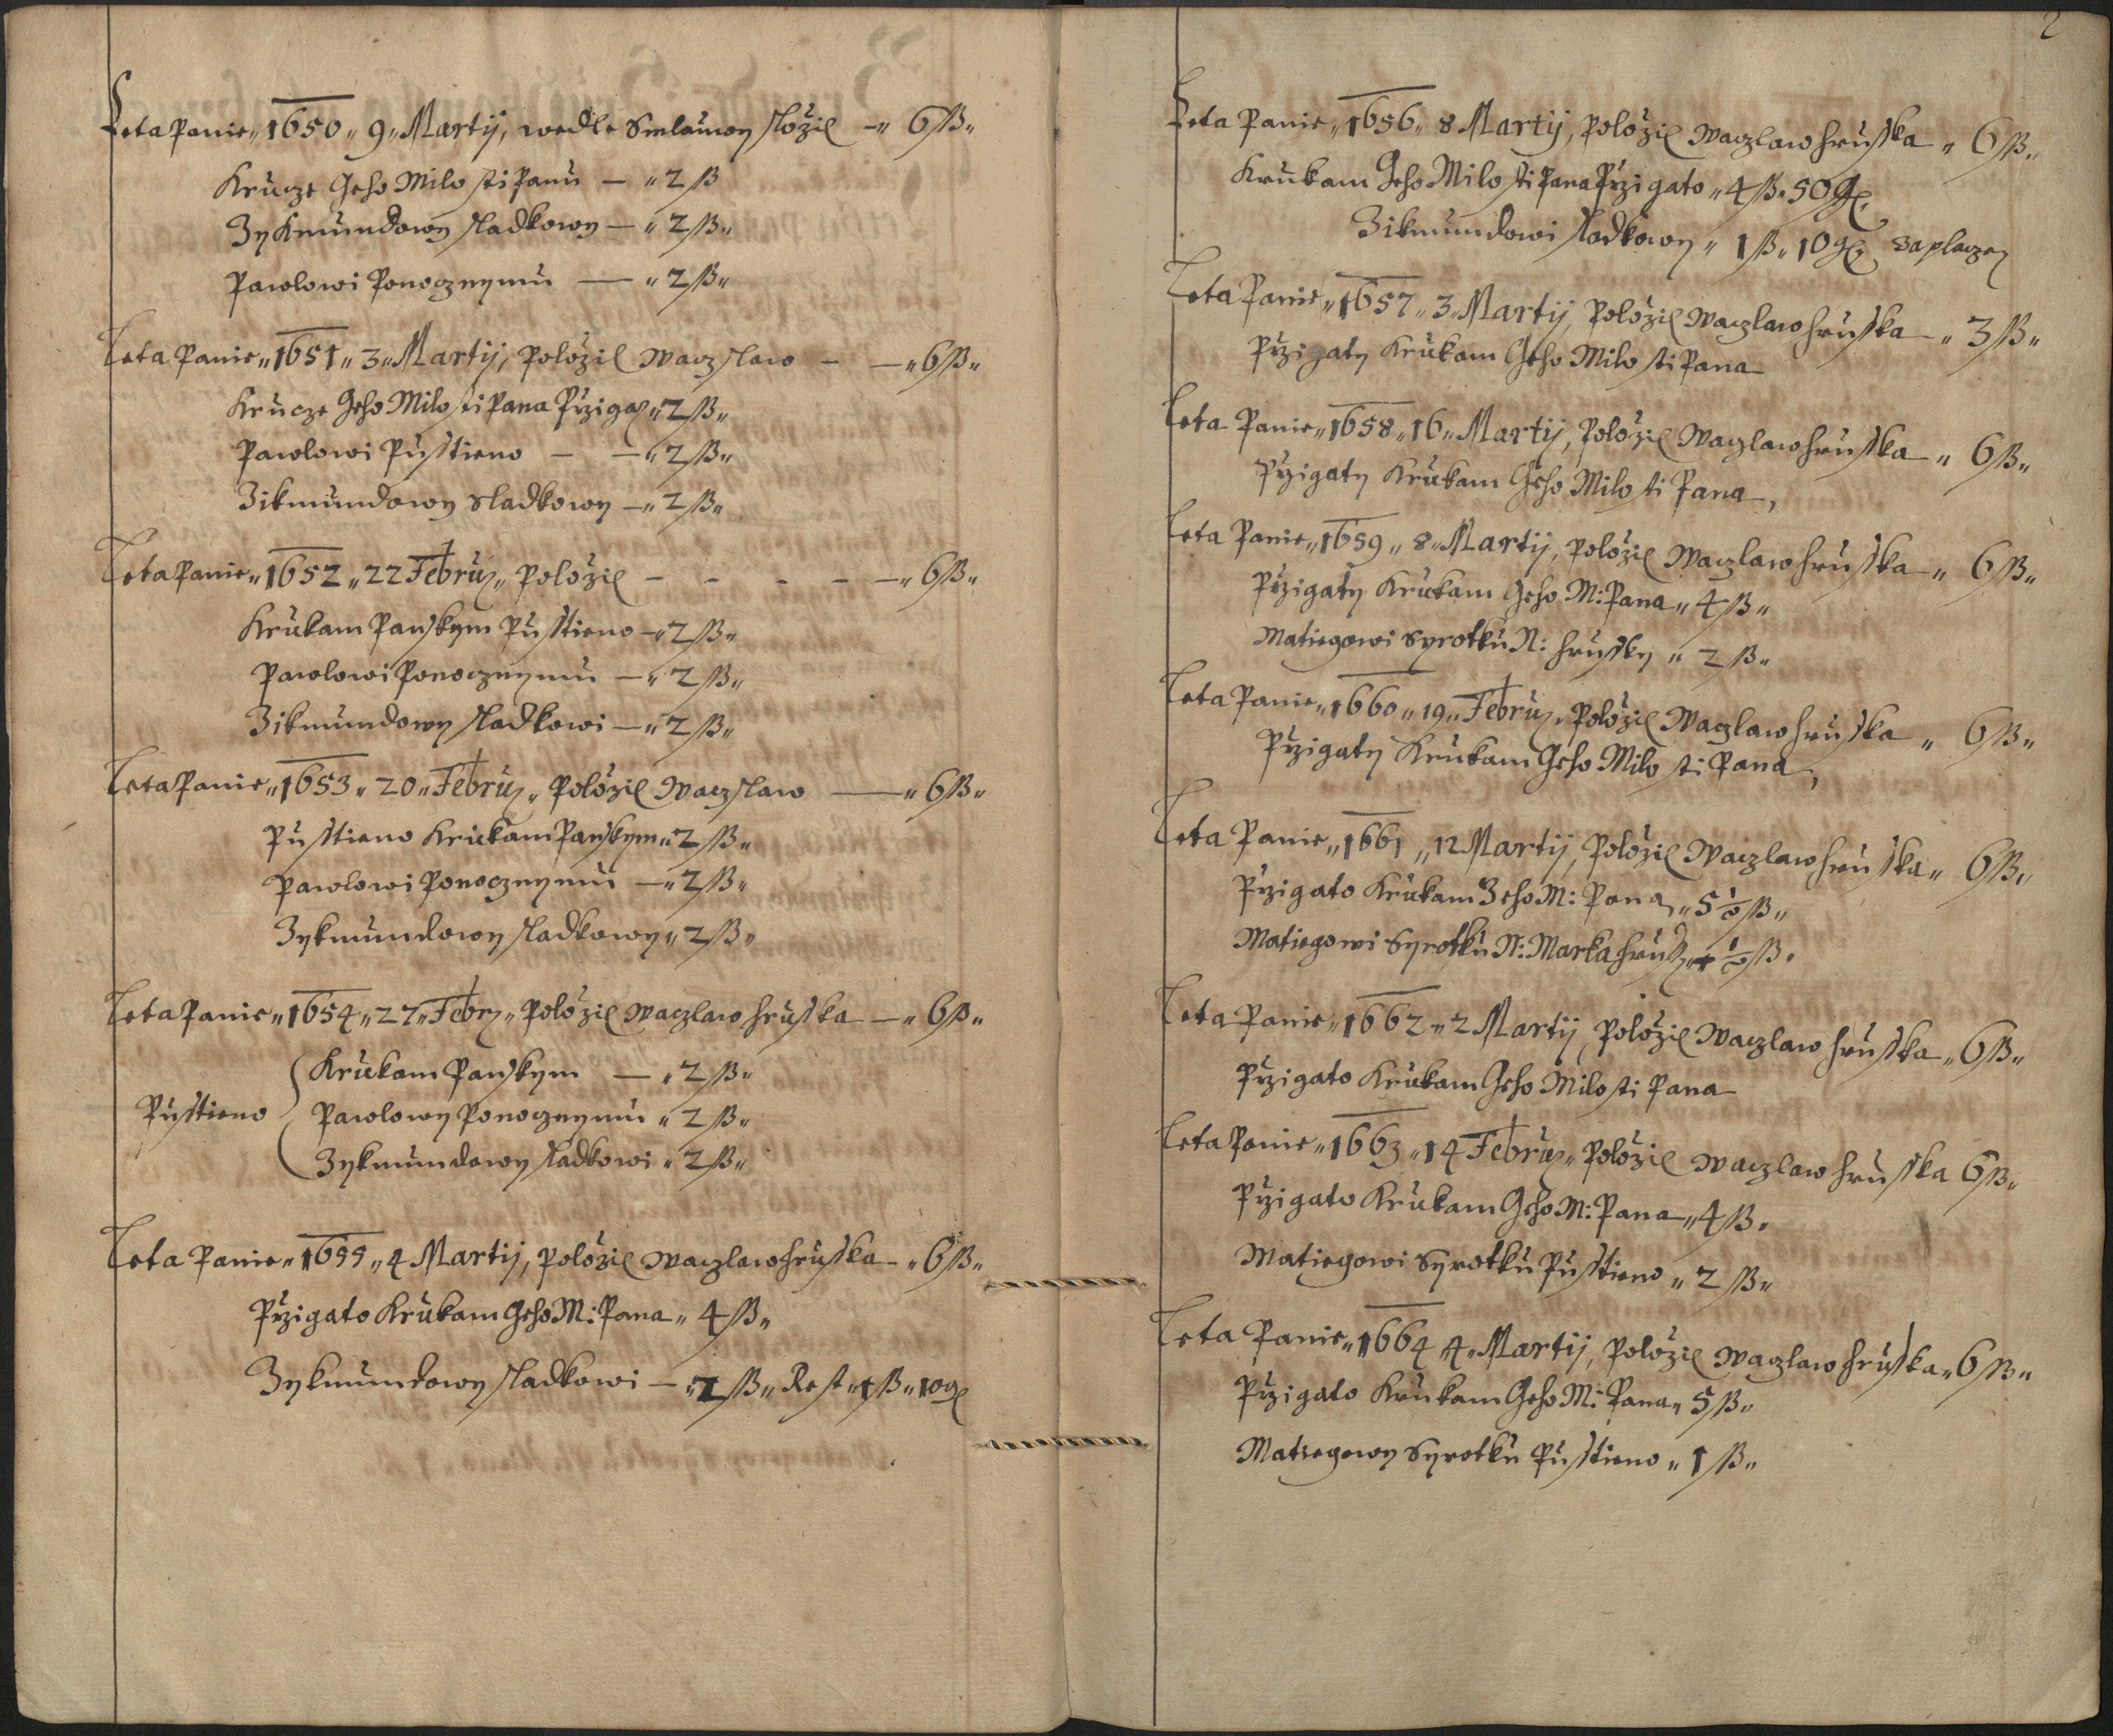 Leta Panie„ 1650„ 9„ Martij, wedle Smlauwy složil —„ 6 ß„
Krucze Geho Milosti Panu — „ 2 ß
Zykmundowy sladkowy — „ 2 ß„
Pawlowi Ponocznymu — „ 2 ß„
Leta Panie„ 1651„ 3„ Martij, položil Waczslaw — —„ 6 ß„
Krucze Geho Milosti Pana Przigaty „ 2 ß„
Pawlowi Pusstieno — —„ 2 ß„
Zikmundowy Sladkowy —„ 2 ß„
Leta Panie„ 1652„ 22 Februz„ položil - - - - —„ 6 ß„
Krukam Panskym Pusstieno —„ 2 ß„
Pawlowi Ponocznymu —„ 2 ß„
Zikmundowy sladkowi —„ 2 ß„
Leta Panie„ 1653„ 20„ Februz„ položil Waczslaw —„ 6 ß„
Pusstieno Krukam Panskym „ 2 ß„
Pawlowi Ponocznymu —„ 2 ß„
Zykmundowy sladkowy „ 2 ß„
Leta Panie„ 1654„ 27„ Febrz„ položil Waczlaw Hrusska —„ 6 ß„
Krukam Panskym — „ 2 ß„
Pusstieno Pawlowy Ponocznymu „ 2 ß„
Zykmundowy sladkowi „ 2 ß„
Leta Panie„ 1655„ 4 Martij, položil Waczlaw Hrusska —„ 6 ß„
Przigato Krukam Geho M: Pana „ 4 ß„
Zykmundowy sladkowi —„ 2 ß„ Rest„ 1 ß„ 10 g
2
Leta Panie„ 1656„ 8 Martij, položil Waczlaw Hrusska „ 6 ß„
Krukam Geho Milosti Pana Przigato „ 4 ß„ 50 g
Zikmundowi sladkowy „ 1 ß„ 10 g zaplaczen
Leta Panie„ 1657„ 3„ Martij, položil Waczlaw Hrusska —„ 3 ß„
Przigaty Krukam Geho Milosti Pana
Leta Panie„ 1658„ 16„ Martij, položil Waczlaw Hrusska „ 6 ß„
Przigaty Krukam Geho Milosti Pana,
Leta Panie„ 1659„ 8„ Martij, položil Waczlaw Hrusska „ 6 ß„
Przigaty Krukam Geho M: Pana „ 4 ß„
Matiegowi Syrotku N: Hrussky „ 2 ß„
Leta Panie„ 1660„ 19„ Februz„ položil Waczlaw Hrusska „ 6 ß„
Przigaty Krukam Geho Milosti Pana,
Leta Panie„ 1661„ 12 Martij, položil Waczlaw Hrusska „ 6 ß„
Przigato Krukam Geho M: Pana „ 5 1/2 ß„
Matiegowi Syrotku N: Marka Hrussky 1/2 ß„
Leta Panie„ 1662„ 2 Martij, položil Waczlaw Hrusska „ 6 ß„
Przigato Krukam Geho Milosti Pana
Leta Panie„ 1663„ 14 Februz„ položil Waczlaw Hrusska 6 ß„
Przigato Krukam Geho M: Pana „ 4 ß„
Matiegowi Syrotku Pusstieno „ 2 ß„
Leta Panie„ 1664 4„ Martij, položil Waczlaw Hrusska „ 6 ß„
Przigato Krukam Geho M: Pana „ 5 ß„
Matiegowy Syrotku Pusstieno „ 1 ß„